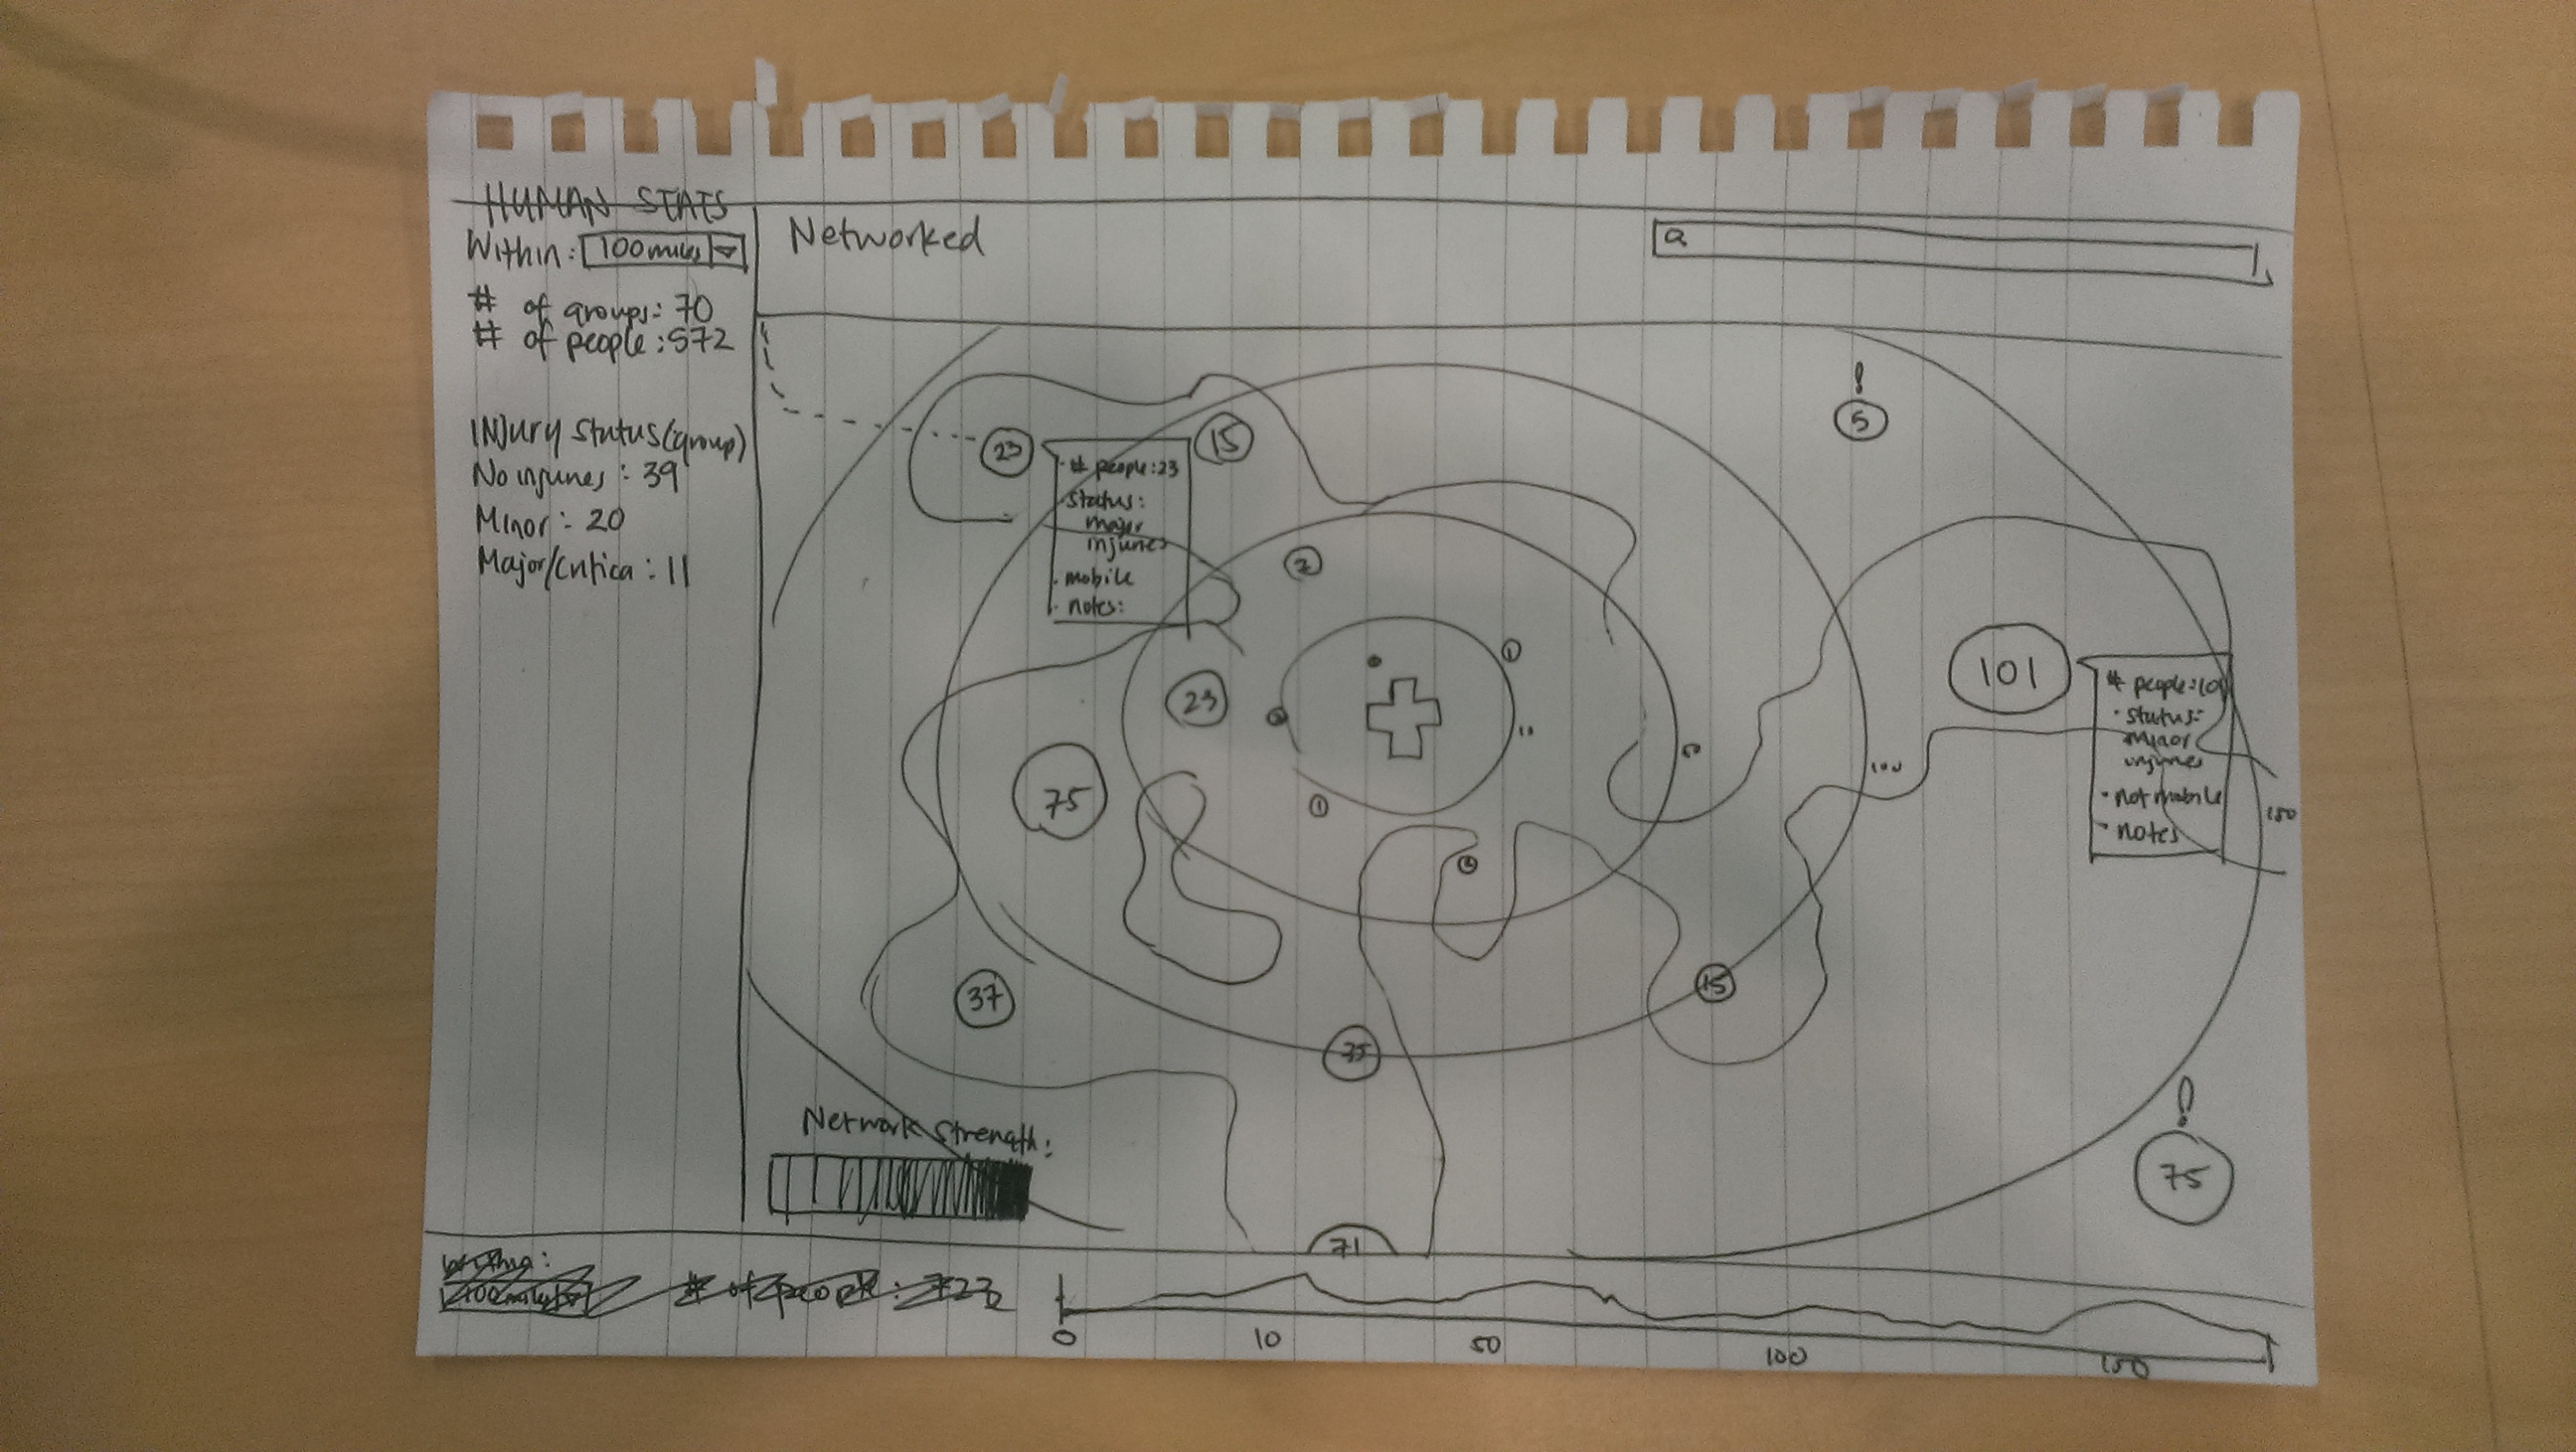 HUMAN STATS
Within: 100miles
# of groups: 70
# of people: 572
INjury Status(group)
No injuries: 39
Minor: 20
Major/Critica: 11
Networked
23
# people:23
Status:
major
injuries
mobile
notes:
15
5
2
1
23
10
50
100
101
# people:101
Status:
minor
injuries
not mobile
notes
150
75
1
37
15
35
75
Network Strength:
71
within:
100miles
# of people:
0
10
50
100
150